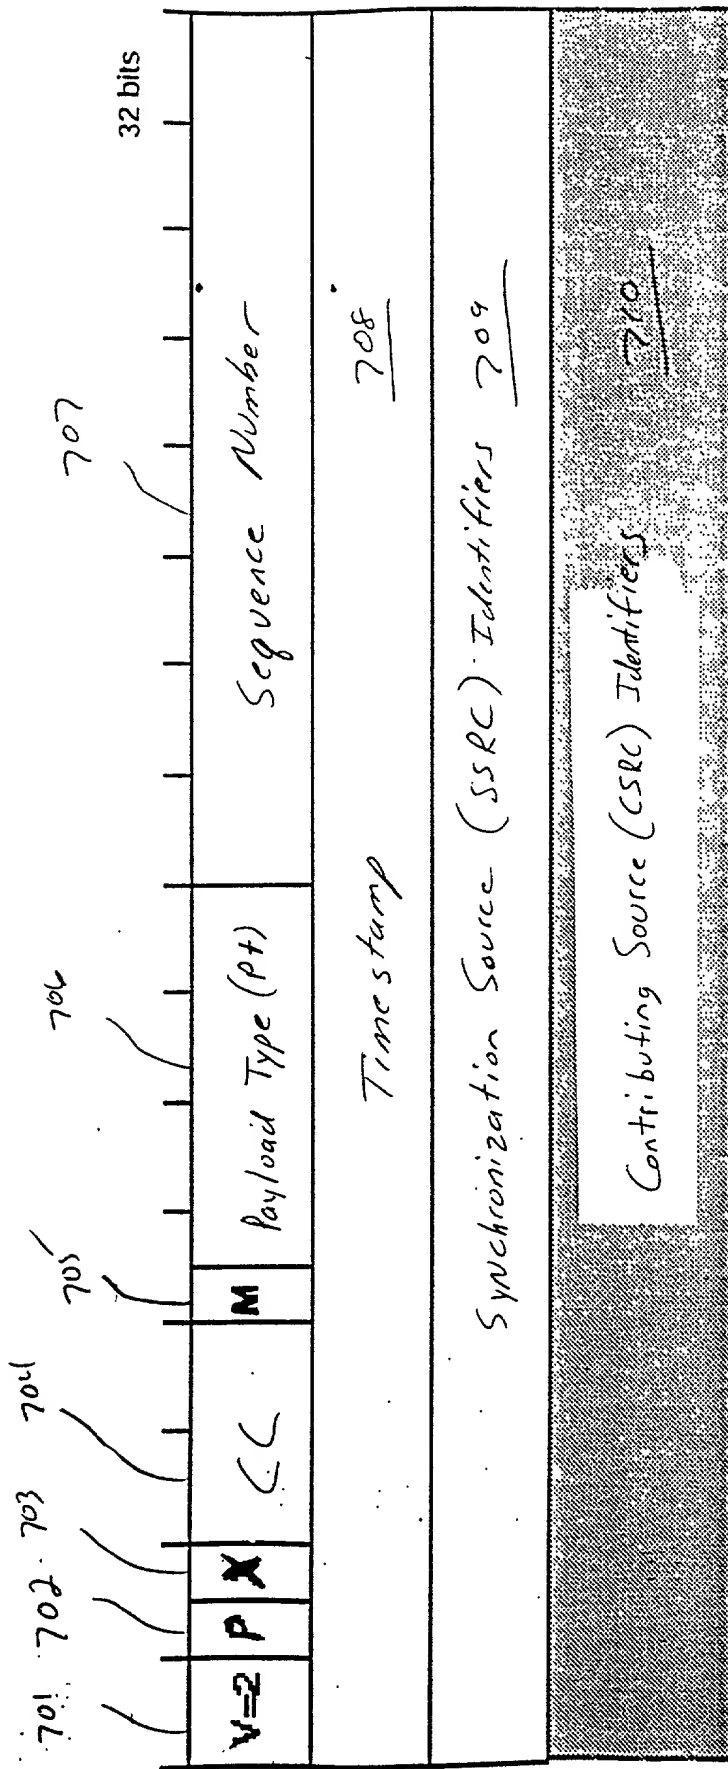 32 bits
701 702 703 704 705 706 707
V=2 P X CC M Payload Type (Pt) Sequence Number
Timestamp 708
Synchronization Source (SSRC) Identifiers 709
Contributing Source (CSRC) Identifiers 710